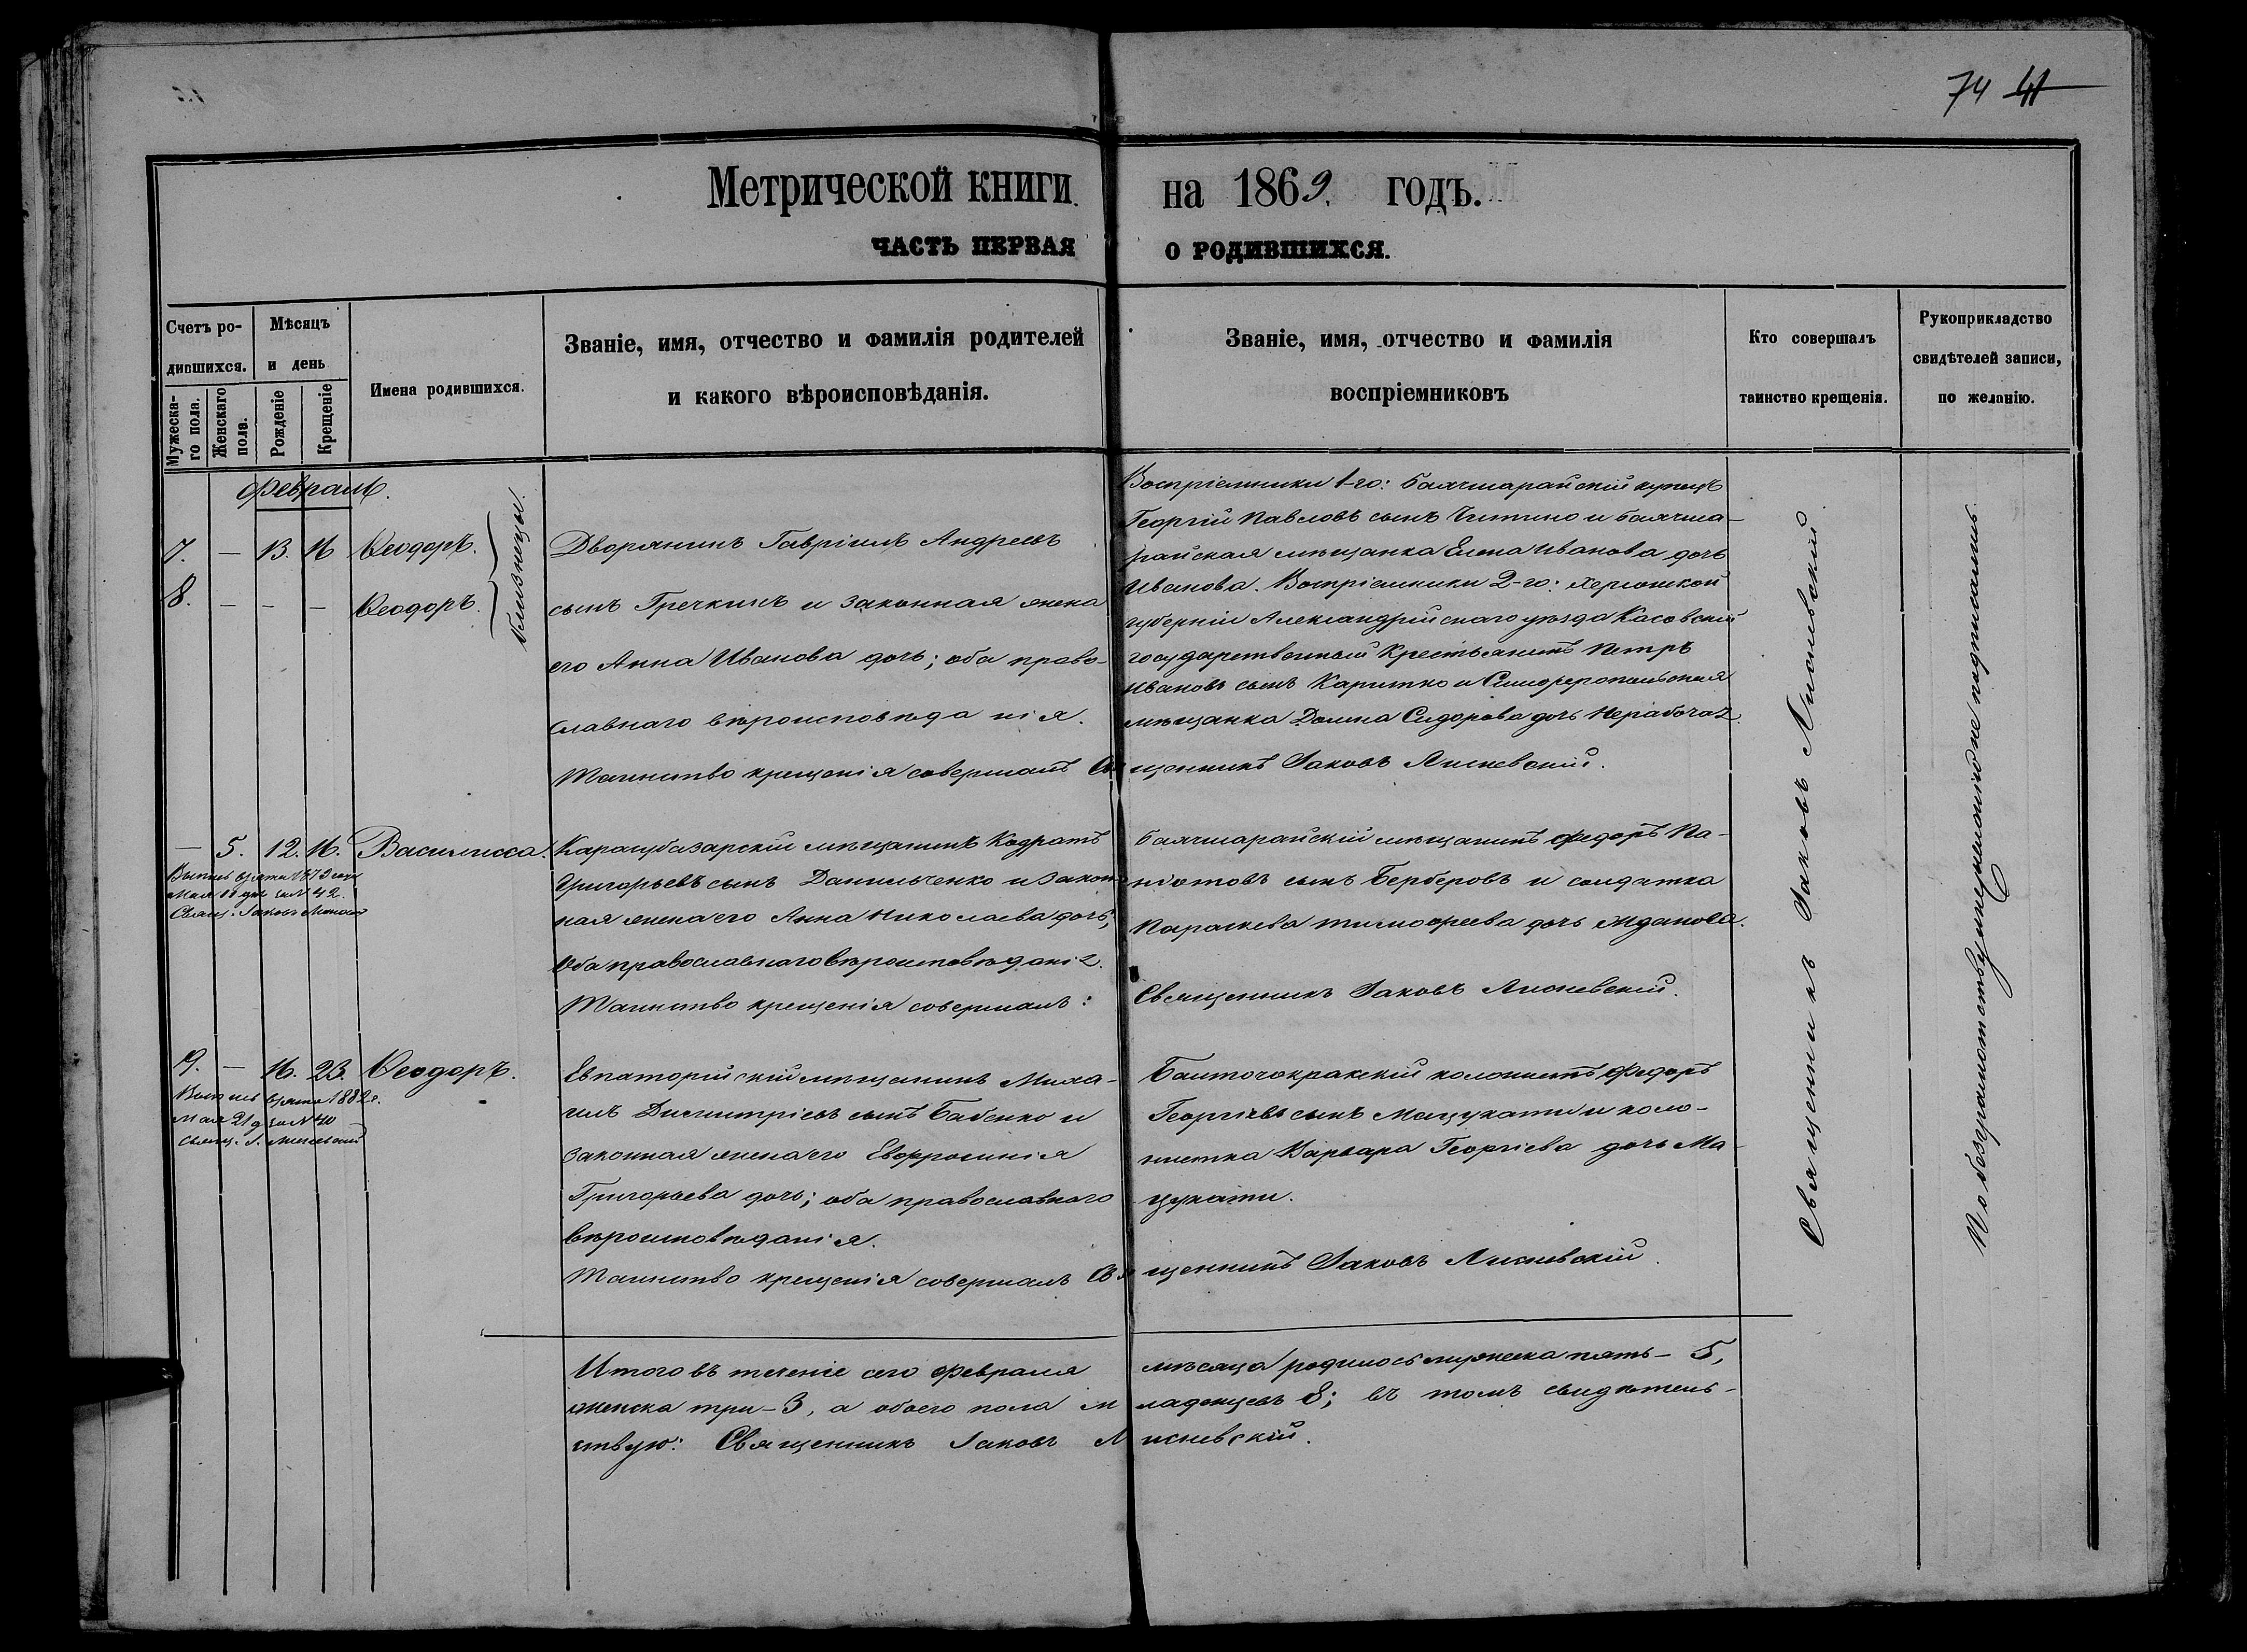 74 41
Метрической книги на 1869. годъ.
ЧАСТЬ ПЕРВАЯ О РОДИВШИХСЯ.
Счетъ ро-
дившихся.
Мужеска-
го пола.
Женскаго
пола.
Мѣсяцъ
и день
Рожденіе
Крещеніе
Имена родившихся.
Званіе, имя, отчество и фамилія родителей
и какого вѣроисповѣданія.
Званіе, имя, отчество и фамилія
воспріемниковъ
Кто совершалъ
таинство крещенія.
Рукоприкладство
свидѣтелей записи,
по желанію.
Февраль.
7. — 13. 16 Ѳеодоръ.
8. — — — Ѳеодоръ.
близнецы.
Дворянинъ Гавріилъ Андреевъ
сынъ Гречкинъ и законная жена
его Анна Иванова дочь; оба право-
славнаго вѣроисповѣданія.
Таинство крещенія совершалъ Свя
Воспріемники 1-го: Бахчисарайскій купецъ
Георгій Павловъ сынъ Читино и Бахчиса-
райская мѣщанка Елена Иванова дочь
Иванова. Воспріемники 2-го: Херсонской
губерніи Александрійскаго уѣзда Касовскій
государственный крестьянинъ Петръ
Ивановъ сынъ Каритко и Симферопольская
мѣщанка Домна Сидорова дочь
щенникъ Іаковъ Лисневскій.
— 5. 12. 16. Василисса.
Выпись взята 1873 года
Мая дня за № 42.
Свящ. Іаковъ
Карасубазарскій мѣщанинъ Кодратъ
Григорьевъ сынъ Данильченко и закон-
ная жена его Анна Николаева дочь;
Оба православнаго вѣроисповѣданія.
Таинство крещенія совершалъ:
Бахчисарайскій мѣщанинъ Федоръ Па-
нютовъ сынъ Берберовъ и солдатка
Параскева Тимофеева дочь Жданова.
Священникъ Іаковъ Лисневскій.
9. — 16. 23. Ѳеодоръ.
Выпись взята 1882 г.
Мая 21 д. за № 40
Свящ. І. Лисневскій
Евпаторійскій мѣщанинъ Миха-
илъ Димитріевъ сынъ Бабенко и
законная жена его Евфросинія
Григорьева дочь; оба православнаго
вѣроисповѣданія.
Таинство крещенія совершалъ Свя
Балточокракскій колонистъ Федоръ
Георгіевъ сынъ Мацукати и коло-
нистка Варвара Георгіева дочь Ма-
цукати.
щенникъ Іаковъ Лисневскій.
Итого въ теченіе сего Февраля мѣсяца родилось мужеска пять – 5,
женска три – 3, а обоего пола младенцевъ 8; въ томъ свидѣтель-
ствую: Священникъ Іаковъ Лисневскій.
Священникъ Іаковъ Лисневскій
По безграмотству никто не подписался.